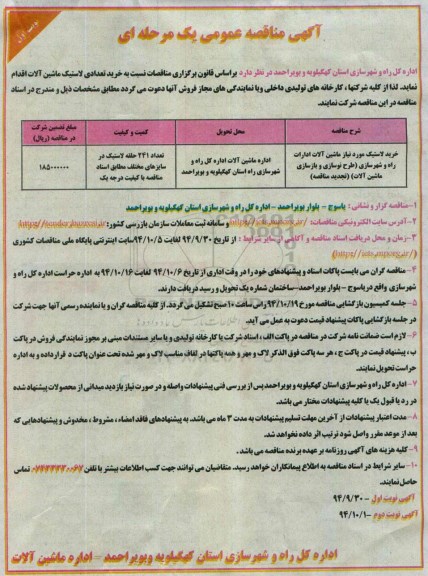 نوبت اول
آگهی مناقصه عمومی یک مرحله ای
اداره کل راه و شهرسازی استان کهگیلویه و بویراحمد در نظر دارد براساس قانون برگزاری مناقصات نسبت به خرید تعدادی لاستیک ماشین آلات اقدام
نماید. لذا از کلیه شرکتها ، کارخانه های تولیدی داخلی ویا نمایندگی های مجاز فروش آنها دعوت می گردد مطابق مشخصات ذیل و مندرج در اسناد
مناقصه در این مناقصه شرکت نمایند.
شرح مناقصه
محل تحویل
کمیت و کیفیت
مبلغ تضمین شرکت در مناقصه (ریال)
خرید لاستیک مورد نیاز ماشین آلات ادارات
راه و شهرسازی (طرح نوسازی و بازسازی
ماشین آلات) (تجدید مناقصه)
اداره ماشین آلات اداره کل راه و
شهرسازی راه استان کهگیلویه و بویراحمد
تعداد ۲۴۱ حلقه لاستیک در
سایزهای مختلف مطابق اسناد
مناقصه با کیفیت درجه یک
۱۸۵۰۰۰۰۰۰
۱-مناقصه گزار و نشانی : یاسوج - بلوار بویراحمد - اداره کل راه و شهرسازی استان کهگیلویه و بویراحمد
۲-آدرس سایت الکترونیکی مناقصات: وسامانه ثبت معاملات سازمان بازرسی کشور:
۳-زمان و محل دریافت اسناد مناقصه و آگاهی از سایر شرایط : از تاریخ ۹۴/۹/۳۰ لغایت ۹۴/۱۰/۵ سایت اینترنتی پایگاه ملی مناقصات کشوری
۴- مناقصه گران می بایست پاکات اسناد و پیشنهادهای خود را در وقت اداری از تاریخ ۹۴/۱۰/۶ لغایت ۹۴/۱۰/۱۶ به اداره حراست اداره کل راه و
شهرسازی واقع در یاسوج - بلوار بویراحمد-ساختمان شماره یک تحویل و رسید دریافت دارند.
۵- جلسه کمیسیون بازگشایی مناقصه مورخ ۹۴/۱۰/۱۹ راس ساعت ۱۰ صبح تشکیل می گردد. از کلیه مناقصه گران و یا نماینده رسمی آنها جهت شرکت
در جلسه بازگشایی پاکات پیشنهاد قیمت دعوت به عمل می آید.
۶- لازم است ضمانت نامه شرکت در مناقصه در پاکت الف ، اسناد شرکت یا کارخانه تولیدی و یا سایر مستندات مبنی بر مجوز نمایندگی فروش در پاکت
ب ، پیشنهاد قیمت در پاکت ج ، هر سه پاکت فوق الذکر لاک و مهر و همه پاکتها در لفاف مناسب لاک و مهر شده تحت عنوان پاکت د قرارداده و به اداره
حراست تحویل نمایند.
۷- اداره کل راه و شهرسازی استان کهگیلویه و بویراحمد پس از بررسی فنی پیشنهادات واصله و در صورت نیاز بازدید میدانی از محصولات پیشنهاد شده
در رد یا قبول یک یا کلیه پیشنهادات مختار می باشد.
۸-مدت اعتبار پیشنهادات از آخرین مهلت تسلیم پیشنهادات به مدت ۳ ماه می باشد. به پیشنهادهای فاقد امضاء ، مشروط ، مخدوش و پیشنهادهایی که
بعد از موعد مقرر واصل شود ترتیب اثر داده نخواهد شد.
۹-کلیه هزینه های آگهی روزنامه بر عهده برنده مناقصه می باشد.
۱۰-سایر شرایط در اسناد مناقصه به اطلاع پیمانکاران خواهد رسید. متقاضیان می توانند جهت کسب اطلاعات بیشتر با تلفن تماس
حاصل نمایند.
آگهی نوبت اول - ۹۴/۹/۳۰
آگهی نوبت دوم -۹۴/۱۰/۱
اداره کل راه و شهرسازی استان کهگیلویه وبویراحمد- اداره ماشین آلات